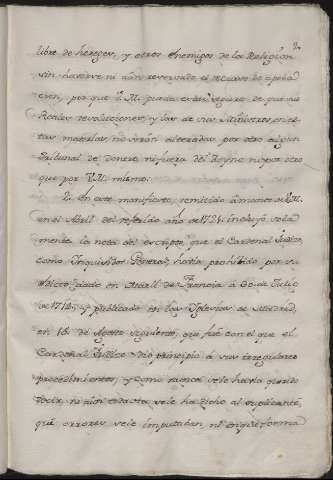 2.
libre de hereges, y otros enemigos de la Religion
sin haverse ni aún reservado el recurso de apela
cion, por que V.M. pueda estar seguro de que sus
Reales resoluciones, y las de sus Ministros en es
tas materias, no serán alteradas por otro algun
Tribunal de dentro ni fuera del Reyno, ni por otro
que por V.M. mismo.
2. En este manifiesto, remitido à manos de V.M.
en el Abril del referido año de 1721. incluyó sola
mente la nota del escripto que el Cardenal Judice,
como Inquisidor General, havia prohibido por su
edicto, dado en Marli de Francia à 30. de Julio
de 1714. y publicado en las Iglesias de Madrid,
en 15. de Agosto siguiente, que fué con el que el
Cardenal Judice dió principio à sus irregulares
procedimientos, y como nunca se le havia querido
decir, ni aún esta se le ha dicho al suplicante,
qué errores se le imputaban, ni en qué forma